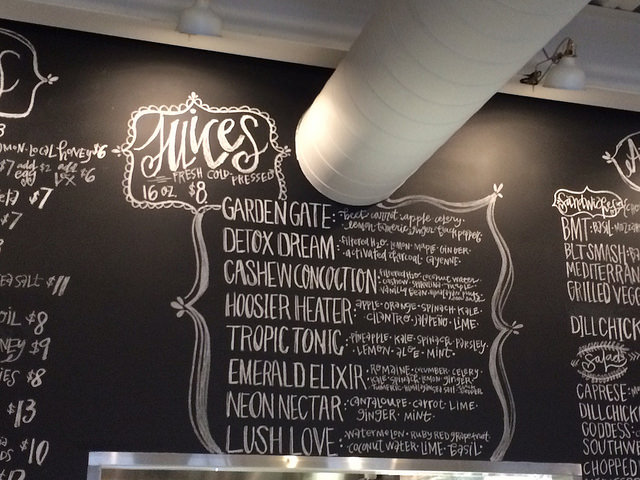 JUICES
FRESH COLD-PRESSED
16 OZ $8
GARDEN GATE: beet carrot apple celery
lemon turmeric ginger black pepper
DETOX DREAM: filtered H2O lemon maple ginger
activated charcoal cayenne
CASHEW CONCOCTION: filtered H2O coconut water
cashew spirulina maple
vanilla bean
HOOSIER HEATER: APPLE ORANGE SPINACH KALE
CILANTRO JALAPEÑO LIME
TROPIC TONIC: PINEAPPLE KALE SPINACH PARSLEY
LEMON ALOE MINT
EMERALD ELIXIR: ROMAINE CUCUMBER CELERY
KALE SPINACH LEMON GINGER
TURMERIC HIMALAYAN SEA SALT
NEON NECTAR: CANTALOUPE CARROT LIME
GINGER MINT
LUSH LOVE: WATERMELON RUBY RED grapefruit
coconut water LIME BASIL
LOCAL honey $6
$7 add egg $2 add lox $6
$7
$7
SEA SALT $11
OIL $8
$9
$8
$13
$10
Sandwiches
BMT: BASIL
BLT SMASH
MEDITERRAN
GRILLED VEGG
DILL CHICK
Salads
CAPRESE
DILL CHICK
GODDESS
SOUTHWE
CHOPPED